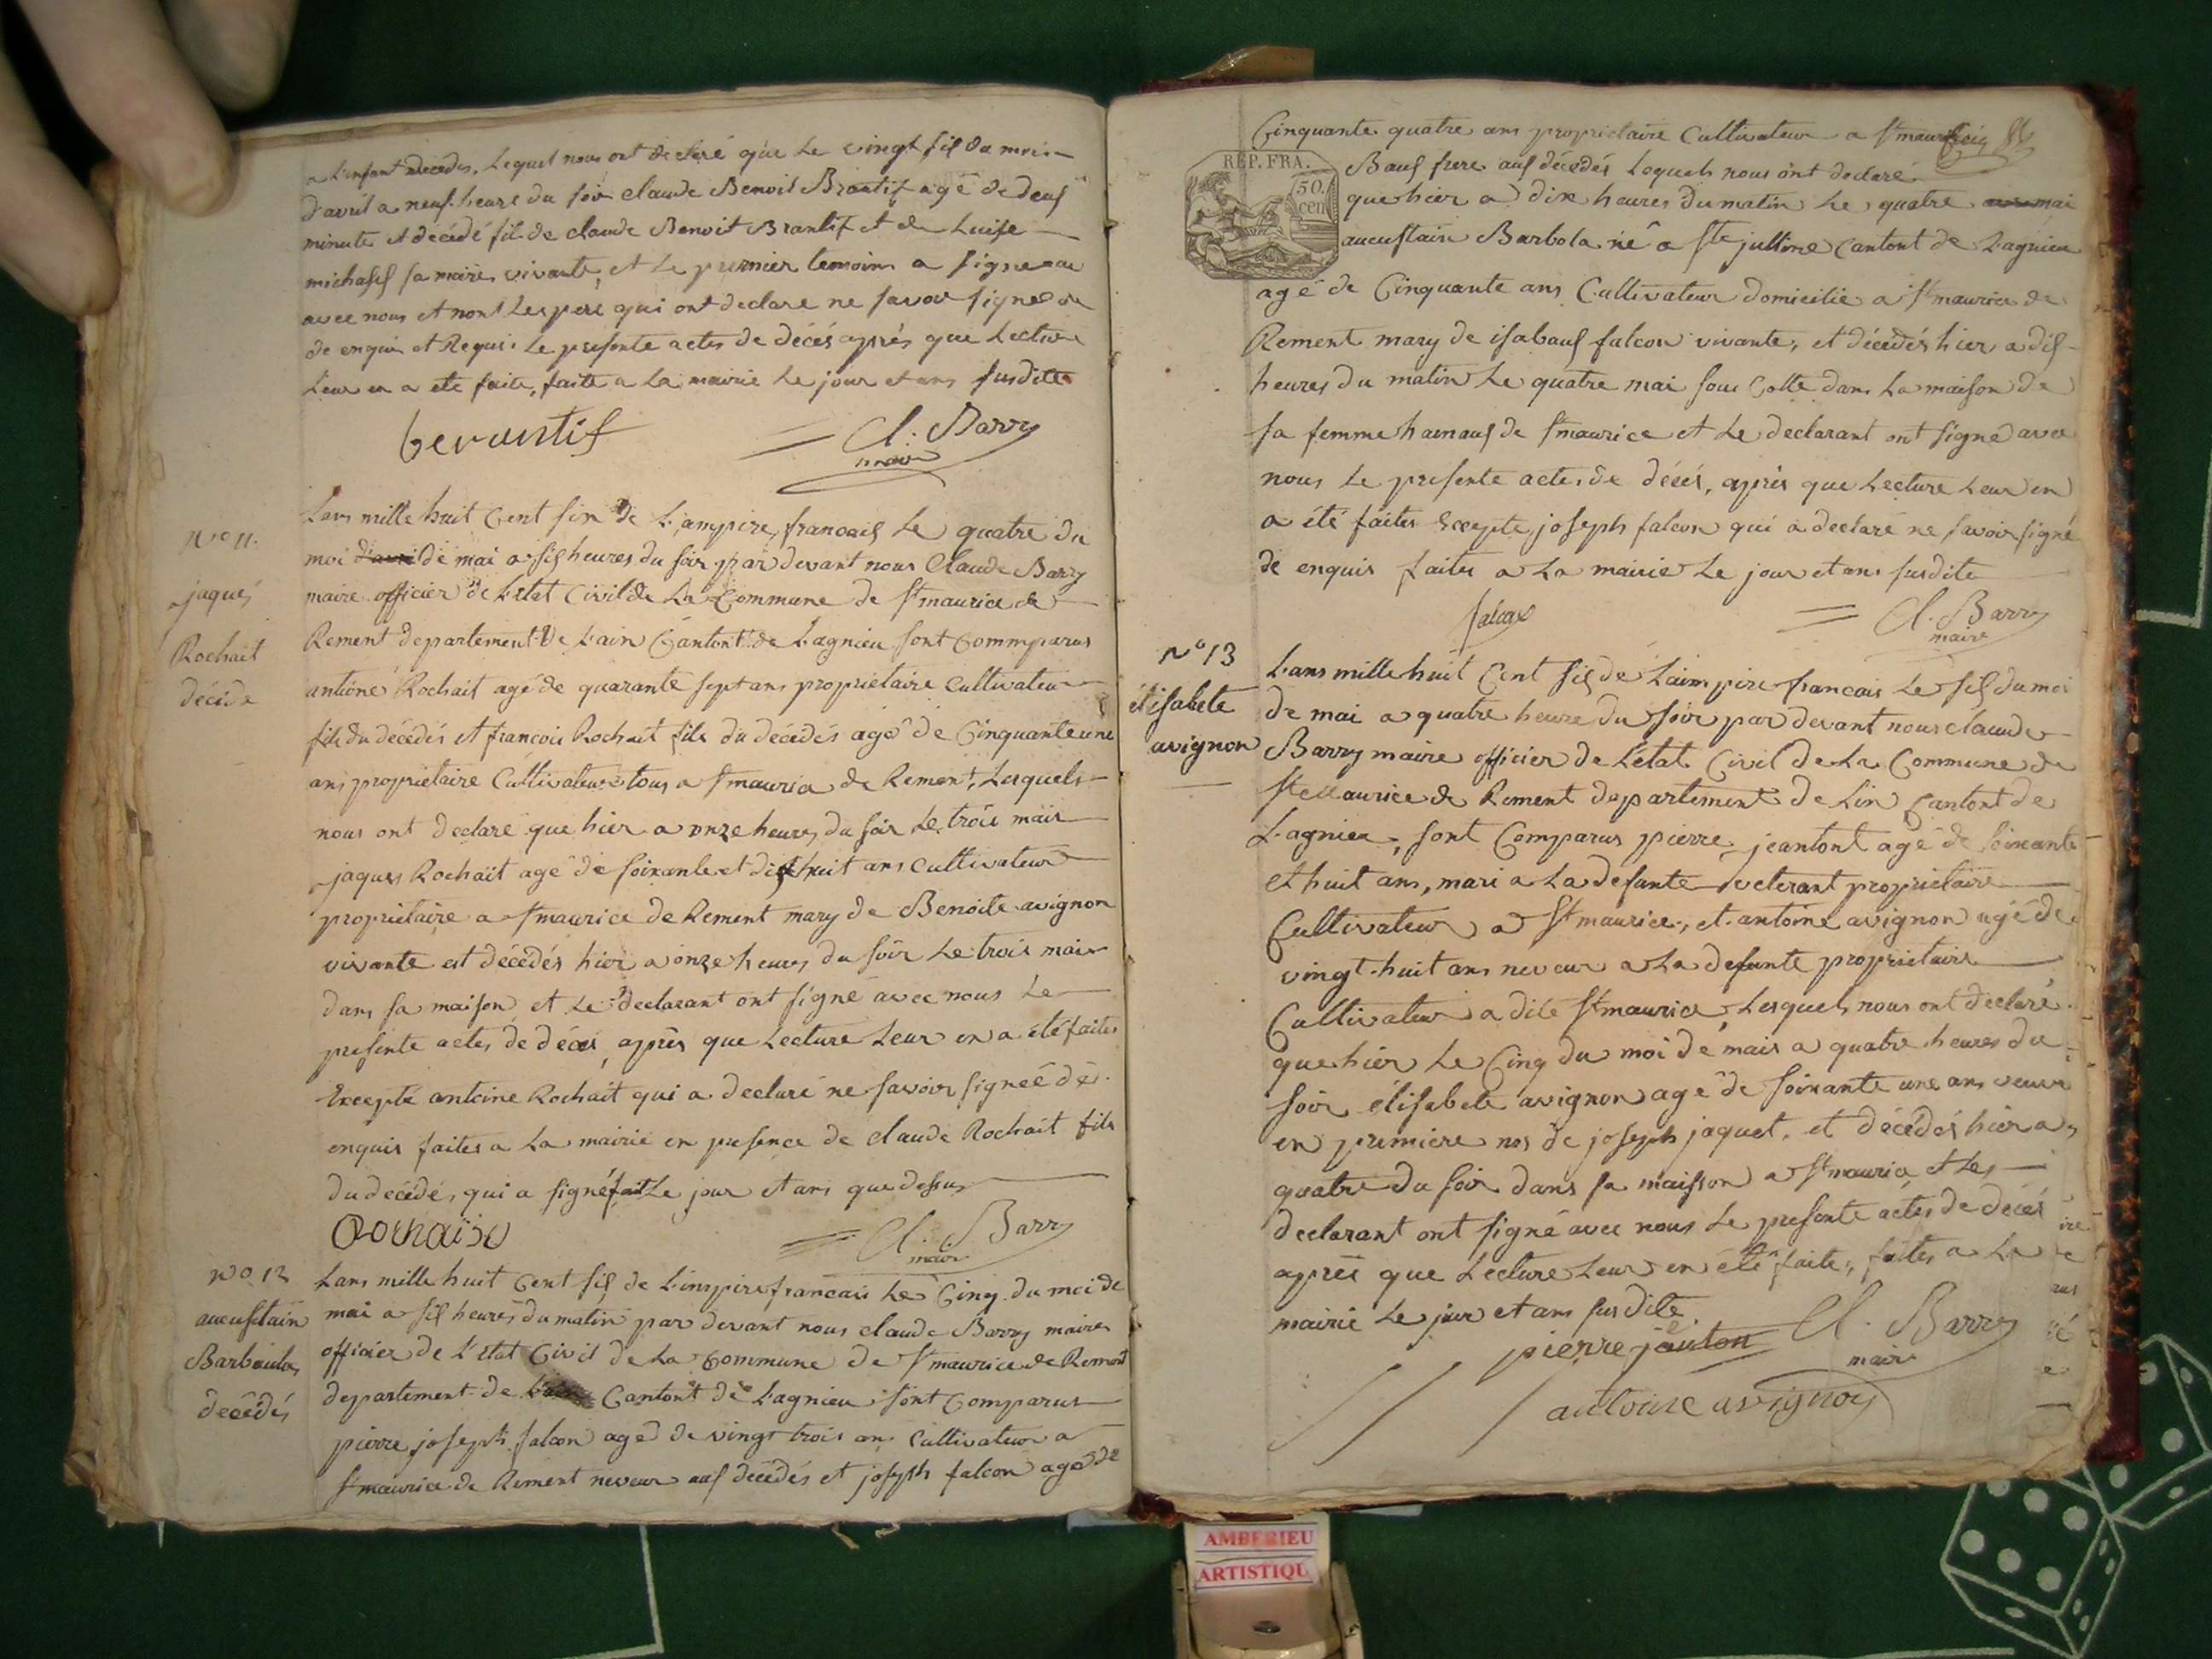 a L'enfant décédés, Lequel nous ont declaré que Le vingt sis du mois
d'avril a neuf heure du soir claude Benoit Brantif agé de deus
minute et décédé fils de claude Benoit Brantif et de Luise
michasel sa maire vivante, et Le premier temoins a signe
avec nous et non Les pere qui ont declare ne savoir signer
de enquis et Requis Le presente actes de décés après que Lecture
Leur en a ete faite, faite a La mairie Le jour et ans susdite
berantif
Cl. Barry
maire
No 11.
jaques
Rochait
décéde
Lans mille huit Cent six de L'ampire francais Le quatre du
moi de mai a sis heures du soir par devant nous Claude Barry
maire officier de L'etat Civil de La Commune de St maurice de
Rement departement de L'ain Cantont de Lagnieu sont Commparus
antoine Rochait agé de quarante sept ans proprietaire Cultivateur
fils du décédés et francois Rochait fils du décédés agé de Cinquante une
ans proprietaire Cultivateur tous a St maurice de Rement, Lesquels
nous ont declaré que hier a onze heures du soir Le trois mais
jaques Rochait agé de soixante et dis huit ans cultivateur
proprietaire a St maurice de Rement mary de Benoite avignon
vivante est décédés hier a onze heures du soir Le trois mais
dans sa maison et Le declarant ont signé avec nous Le
presente actes de décés, après que Lecture Leur en a été faites
Excepté antoine Rochait qui a declaré ne savoir signeé de
enquis faites a La mairie en presence de claude Rochait fils
du decédés, qui a signé fait Le jour et ans que dessus
Rochaix
Cl. Barry
maire
No 12
aucustain
Barboula
decédés
Lans mille huit Cent sis de L'inspire francais Le Cinq du moi de
mai a sis heures du matin par devant nous claude Barry maire
officier de L'etat Civil de La Commune de St maurice de Rement
departement de Cantont de Lagnieu sont Comparus
pierre joseph falcon agé de vingt trois ans Cultivateur a
St maurice de Rement neveur aus décédés et joseph falcon agé de
Cinquante quatre ans proprietaire Cultivateur a St maurice
REP. FRA.
50.
cen
Baus frere aus décédés Lequels nous ont declaré
que hier a dix heures du matin Le quatre mai
aucustain Barbola né a Ste jultine Cantont de Lagnieu
agé de Cinquante ans Cultivateur domicilie a St maurice de
Rement mary de isabaus falcon vivante, et décédés hier a dis
heures du matin Le quatre mai sous Cotte dans La maison de
sa femme hamaus de St maurice et Le declarant ont signé avec
nous Le presente actes de décés, après que Lecture Leur en
a été faites Excepte joseph falcon qui a declaré ne savoir signé
de enquis faites a La mairie Le jour et ans susdite
falcon
Cl. Barry
maire
No 13
élisabete
avignon
L'ans mille huit Cent sis de L'aimpire francais Le sis du moi
de mai a quatre heure du soir par devant nous claude
Barry maire officier de L'état Civil de La Commune de
Ste Maurice de Rement departement de Lin Cantont de
Lagnieu, sont Comparus pierre jeantont agé de soixante
et huit ans, mari a La defunte veterant proprietaire
Cultivateur a St maurice, et antoine avignon agé de
vingt huit ans neveur a La defunte proprietaire
Cultivateur a dite St maurice, Lesquels nous ont declaré
que hier Le Cinq du moi de mais a quatre heures du
soir élisabete avignon agé de soixante une ans veuve
en premiere nos de joseph jaquet, et décédés hier a
quatre du soir dans sa maisson a St maurice et Les
declarant ont signé avec nous Le presente actes de décés
après que Lecture Leur en été faite, faites a La
mairie Le jour et ans susdite
pierre jauton
Cl. Barry
maire
antoine avignon
AMBERIEU
ARTISTIQU